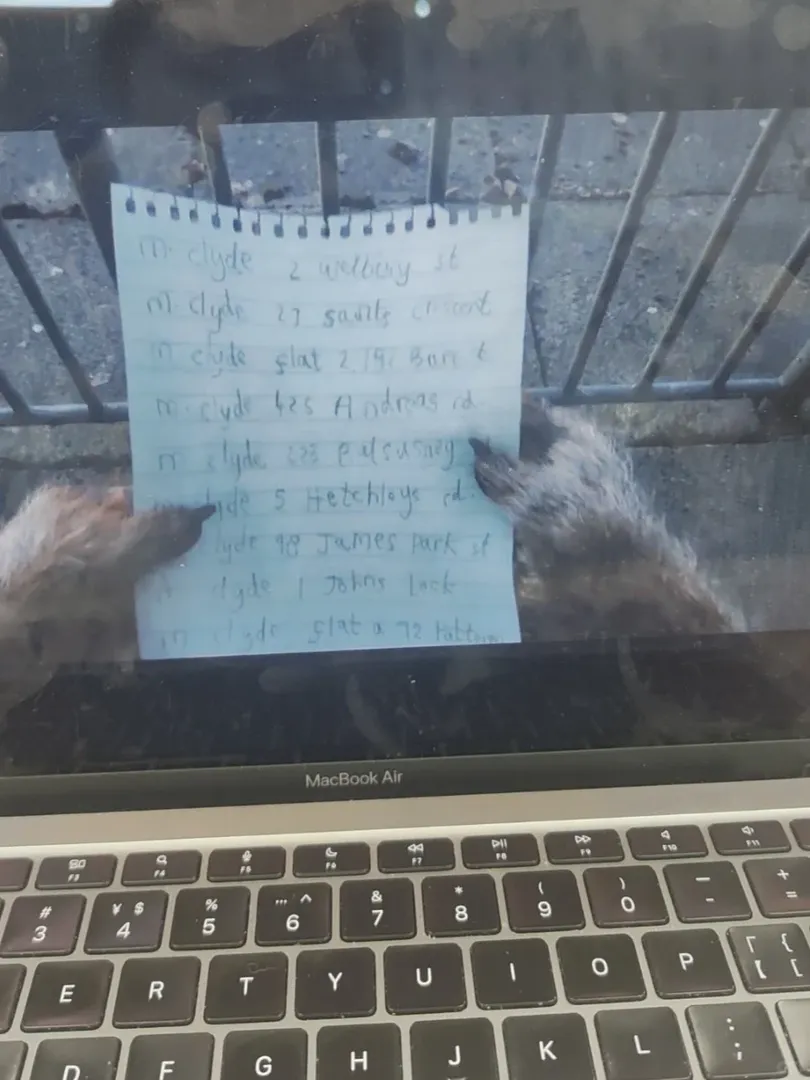 m. clyde 2 welbury st
m. clyde 27 saints crescent
m clyde flat 2 191 Burn t
m. clyde 425 Andreas rd.
m clyde
clyde 5 Hetchloys rd.
clyde 98 James Park st
clyde 1 Johns Lock
m clyde flat a 72
MacBook Air
F3 F4 F5 F6 F7 F8 F9 F10 F11
# 3 ¥ $ 4 % 5 … ^ 6 & 7 * 8 ( 9 ) 0 — - + =
E R T Y U I O P 「 { 【 [
D F G H J K L : ;